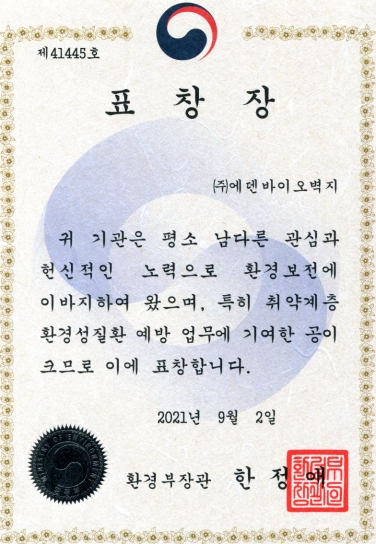 제41445호
표 창 장
(주)에덴바이오벽지
귀 기관은 평소 남다른 관심과
헌신적인 노력으로 환경보전에
이바지하여 왔으며, 특히 취약계층
환경성질환 예방 업무에 기여한 공이
크므로 이에 표창합니다.
2021년 9월 2일
환경부장관 한정애